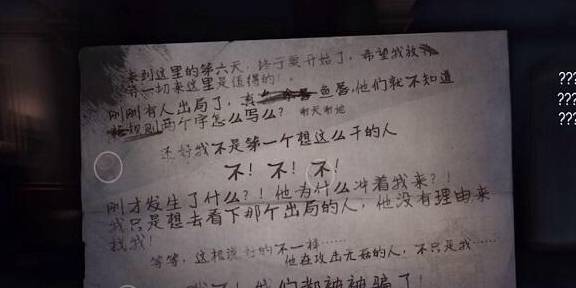 来到这里的第六天,终于要开始了,希望我放弃
一切来这里是值得的!
刚刚有人出局了,真 鱼唇,他们就不知道
规则两个字怎么写么? 谢天谢地
还好我不是第一个想这么干的人
不!不!不!
刚才发生了什么?!他为什么冲着我来?!
我只是想去看下那个出局的人,他没有理由来
找我!
等等,这根说好的不一样……
他在攻击无辜的人,不只是我……
我们都被骗了!
???
???
???